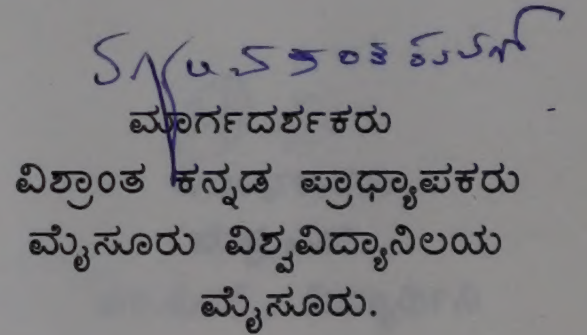 ಮಾರ್ಗದರ್ಶಕರು
ವಿಶ್ರಾಂತ ಕನ್ನಡ ಪ್ರಾಧ್ಯಾಪಕರು
ಮೈಸೂರು ವಿಶ್ವವಿದ್ಯಾನಿಲಯ
ಮೈಸೂರು.